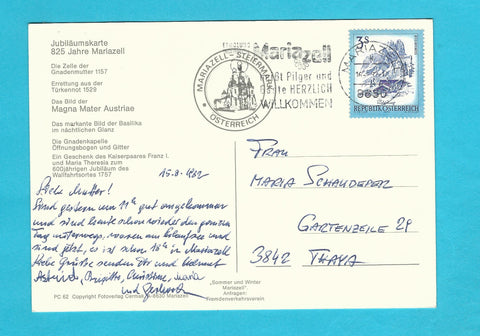 Jubiläumskarte
825 Jahre Mariazell
Die Zelle der
Gnadenmutter 1157
Errettung aus der
Türkennot 1529
Das Bild der
Magna Mater Austriae
Das markante Bild der Basilika
im nächtlichen Glanz
Die Gnadenkapelle
Öffnungsbogen und Gitter
Ein Geschenk des Kaiserpaares Franz I.
und Maria Theresia zum
600jährigen Jubiläum des
Wallfahrtsortes 1757
MARIAZELL – STEIERMARK
ÖSTERREICH
Mariazell
Pilger und
Gäste HERZLICH
WILLKOMMEN
MARIAZELL
8630
3 S
REPUBLIK ÖSTERREICH
15.8.1982
Liebe Mutter!
Sind gestern um 11h gut angekommen
und sind heute schon wieder den ganzen
Tag unterwegs, waren am Erlaufsee und
sind jetzt, es ist schon 18h in Mariazell
Liebe Grüße senden Dir und Helmut
Astrid, Brigitte, Christine, Maria
und
FRAU
MARIA SCHAUDEPER
GARTENZEILE 29
3842 THAYA
"Sommer und Winter
Mariazell".
Anfragen:
Fremdenverkehrsverein
PC 62 Copyright Fotoverlag A-8630 Mariazell